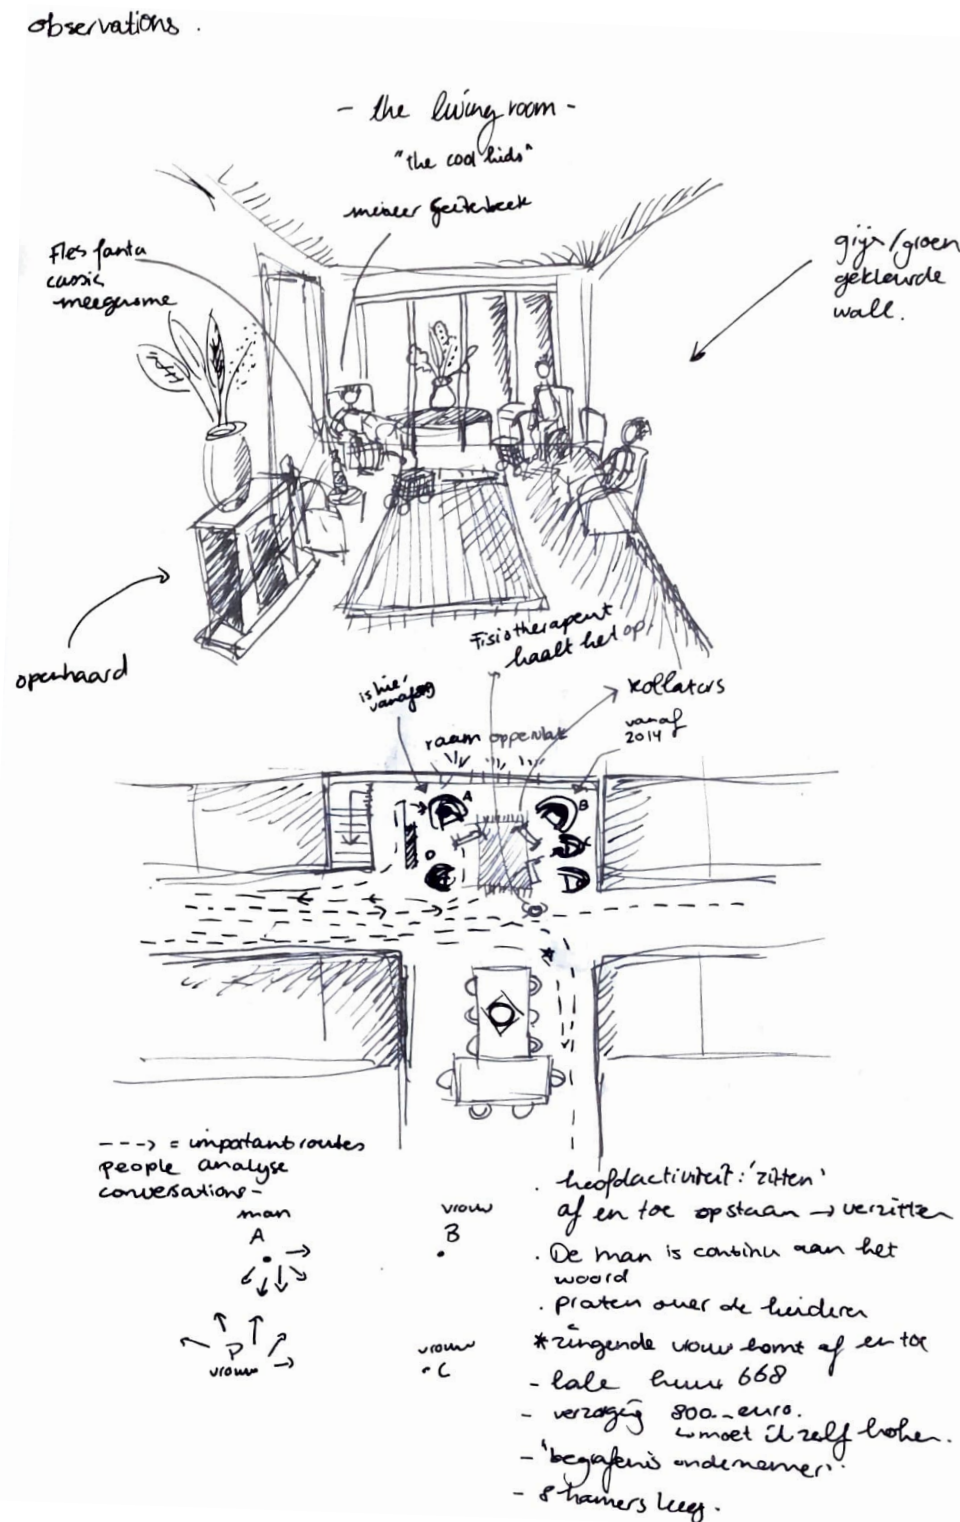 observations.
- the living room -
"the cool kids"
meneer Geitenbeek
Fles fanta
cassis
meegenome
grijs/groen
gekleurde
wall.
openhaard
Fisiotherapeut
haalt het op.
is hier
vanafoog
rollators
vanaf
2014
raam oppervlak
A
B
---> = important routes
people analyse
conversations -
man
A
vrouw
B
P
vrouw
vrouw
C
. hoofdactiviteit: 'zitten'
af en toe opstaan → verzitten
. De man is continu aan het
woord
. praten over de kinderen
* zingende vrouw komt af en toe
- kale huur 668
- verzorging 800 euro.
↳ moet ik zelf koken.
- 'begrafenis ondernemer'
- 8 kamers leeg.